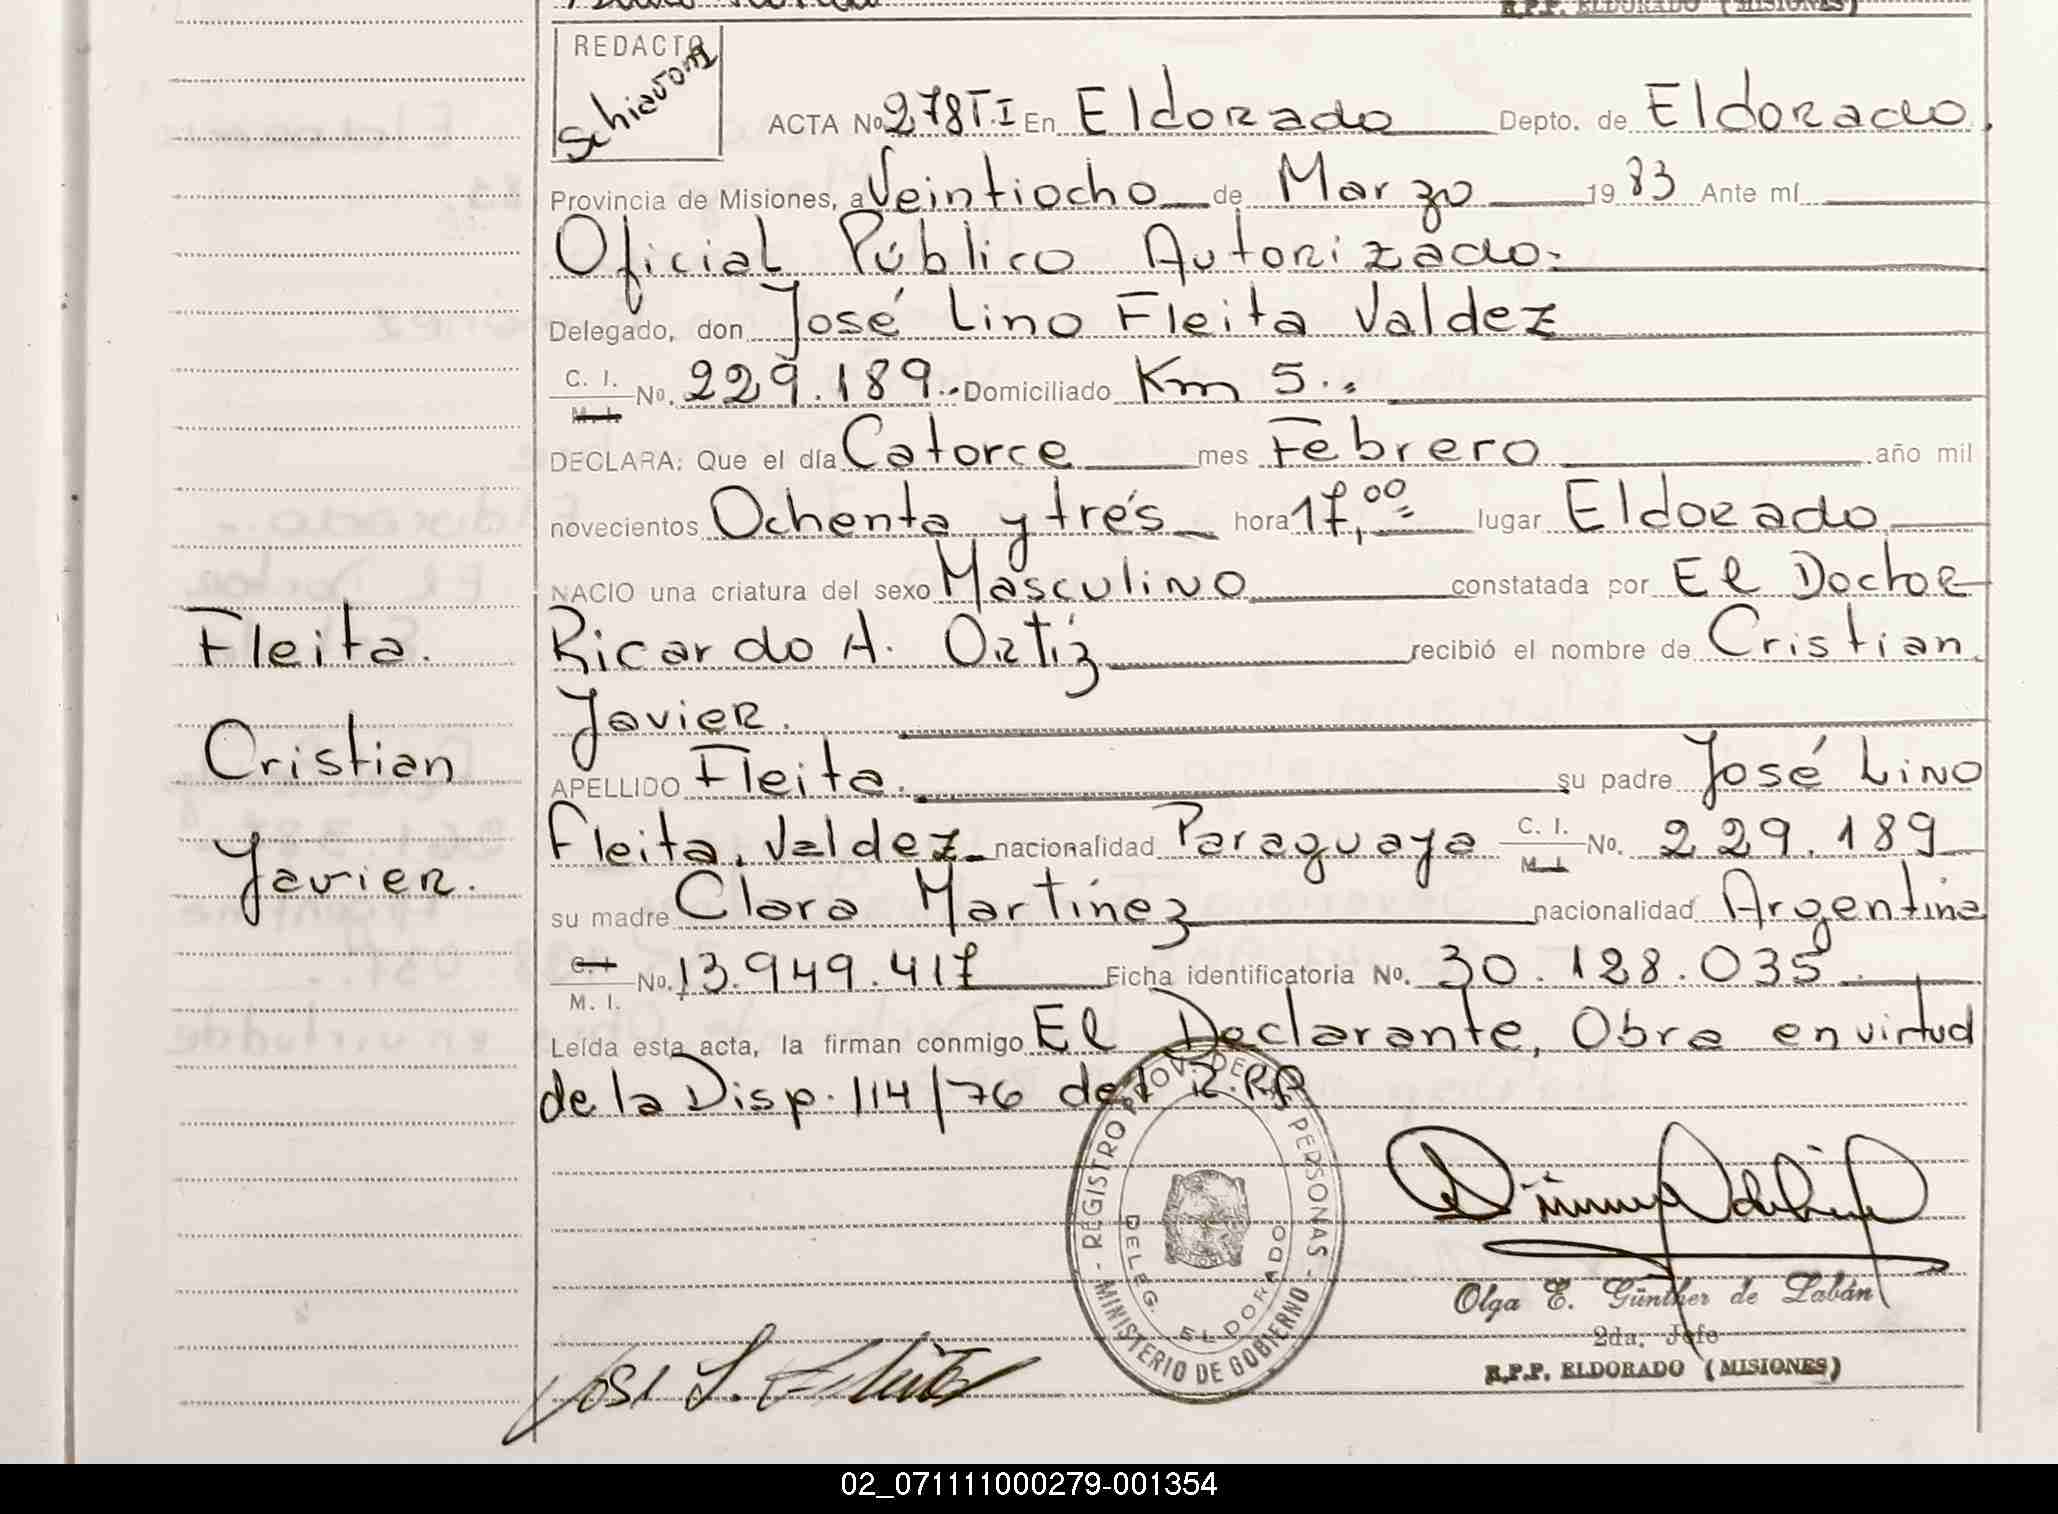 R.P.P. ELDORADO (MISIONES)
REDACTO
Schiavoni
ACTA No 278 T.I En Eldorado Depto. de Eldorado,
Provincia de Misiones, a Veintiocho de Marzo 1983 Ante mí
Oficial Público Autorizado.
Delegado, don José Lino Fleita Valdez
C. I. M. I. No. 229.189.. Domiciliado Km 5..
DECLARA: Que el día Catorce mes Febrero año mil
novecientos Ochenta y trés hora 17,00 lugar Eldorado
NACIO una criatura del sexo Masculino constatada por El Doctor
Fleita.
Ricardo A. Ortíz recibió el nombre de Cristian
Javier.
Cristian
APELLIDO Fleita. su padre José Lino
Javier.
Fleita. Valdez nacionalidad Paraguaya C. I. M. I. No. 229.189
su madre Clara Martínez nacionalidad Argentina
C. I. M. I. No. 13.949.417 Ficha identificatoria No. 30.128.035.
Leída esta acta, la firman conmigo El Declarante, Obra en virtud
de la Disp. 114/76 del R.RP
- REGISTRO PROV. DE LAS PERSONAS -
MINISTERIO DE GOBIERNO
DELEG. ELDORADO
Olga E. Günther de Labán
2da. Jefe
R.P.P. ELDORADO (MISIONES)
José L. Fleita
02_071111000279-001354